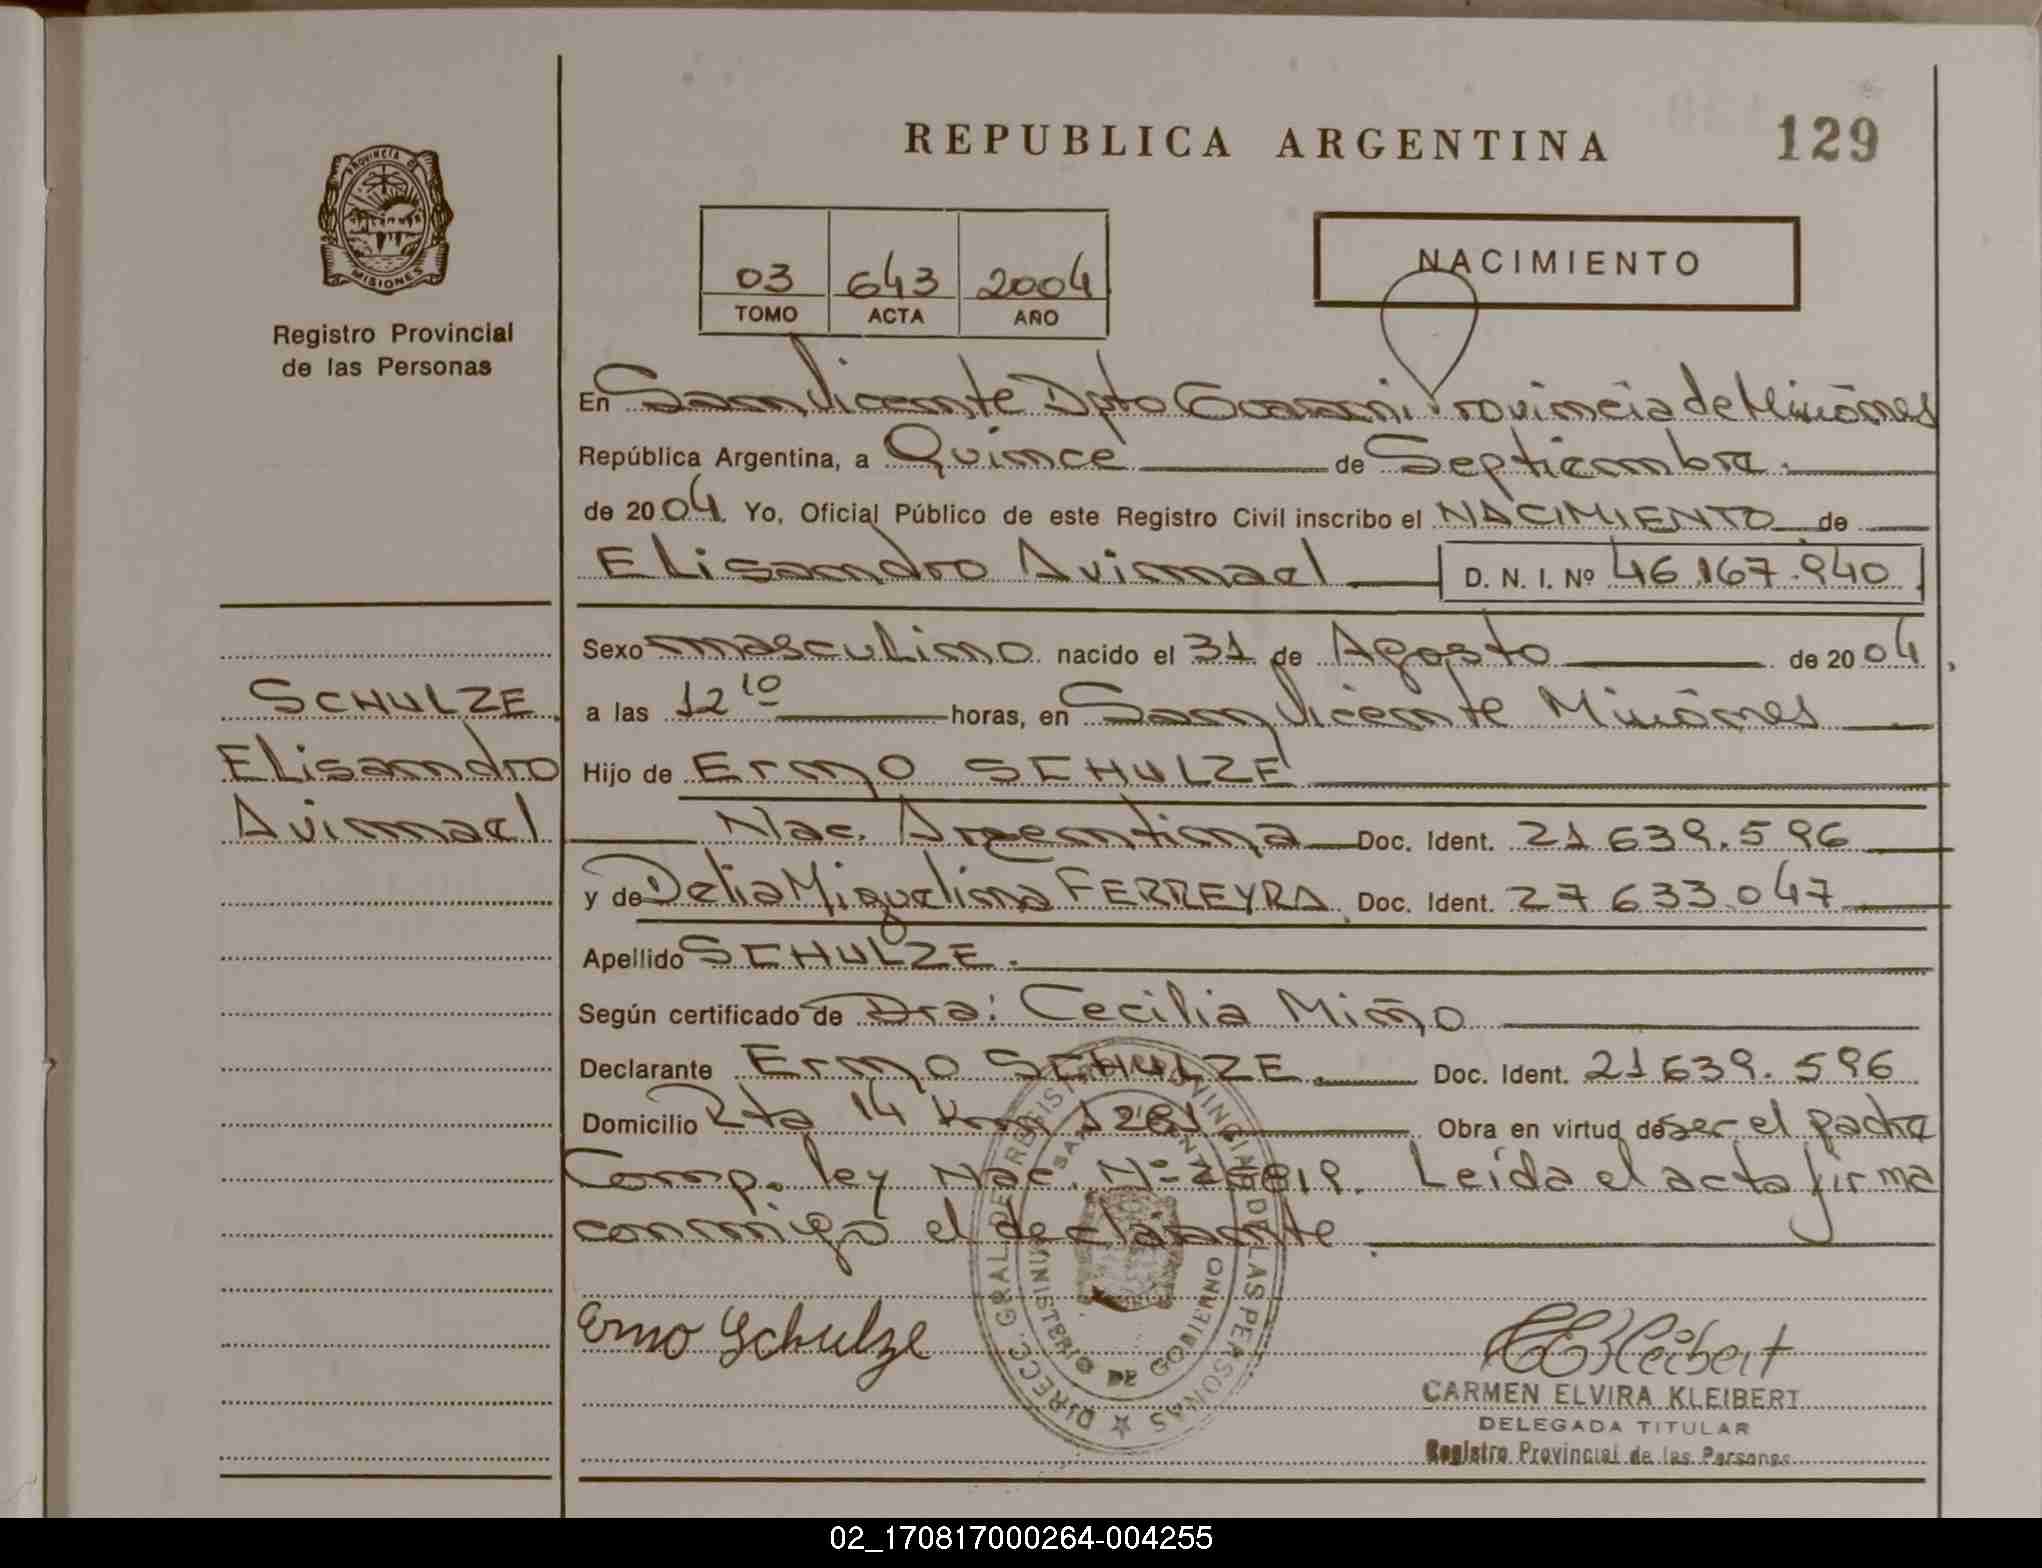 REPUBLICA ARGENTINA
129
PROVINCIA DE
MISIONES
Registro Provincial
de las Personas
03
643
2004
TOMO
ACTA
AÑO
NACIMIENTO
En San Vicente Dpto Guarani Provincia de Misiones
República Argentina, a Quince de Septiembre.
de 2004. Yo, Oficial Público de este Registro Civil inscribo el NACIMIENTO de
Elisandro Avimael
D. N. I. Nº 46.167.940
Sexo masculino nacido el 31 de Agosto de 2004,
a las 12 10 horas, en San Vicente Misiones
Hijo de Ermo SCHULZE
Nac. Argentina Doc. Ident. 21 639.596
y de Delia Miguelina FERREYRA Doc. Ident. 27 633.047
Apellido SCHULZE.
Según certificado de Dra: Cecilia Miño
Declarante Ermo SCHULZE. Doc. Ident. 21 639.596
Domicilio Rta 14 Km 1261 Obra en virtud de ser el padre
Comp. ley Nac. Nº 25819. Leída el acta firma
conmigo el declarante.
SCHULZE
Elisandro
Avimael
Ermo Schulze
DIRECC. GRAL. DE REGISTRO PROVINCIAL DE LAS PERSONAS
MINISTERIO DE GOBIERNO
C E Kleibert
CARMEN ELVIRA KLEIBERT
DELEGADA TITULAR
Registro Provincial de las Personas
02_170817000264-004255